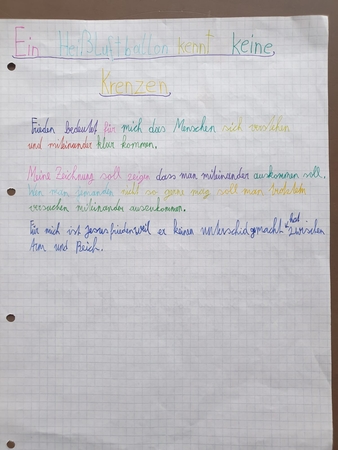 Ein Heißluftballon kennt keine
Krenzen
Frieden bedeutet für mich das Menschen sich verstehen
und miteinander klar kommen.
Meine Zeichnung soll zeigen dass man miteinander auskommen soll.
Wen man jemanden nicht so gerne mag soll man trotzdem
versuchen miteinander auszukommen.
Für mich ist Jesus frieden weil er keinen unterschid gemacht hat zwischen
Arm und Reich.